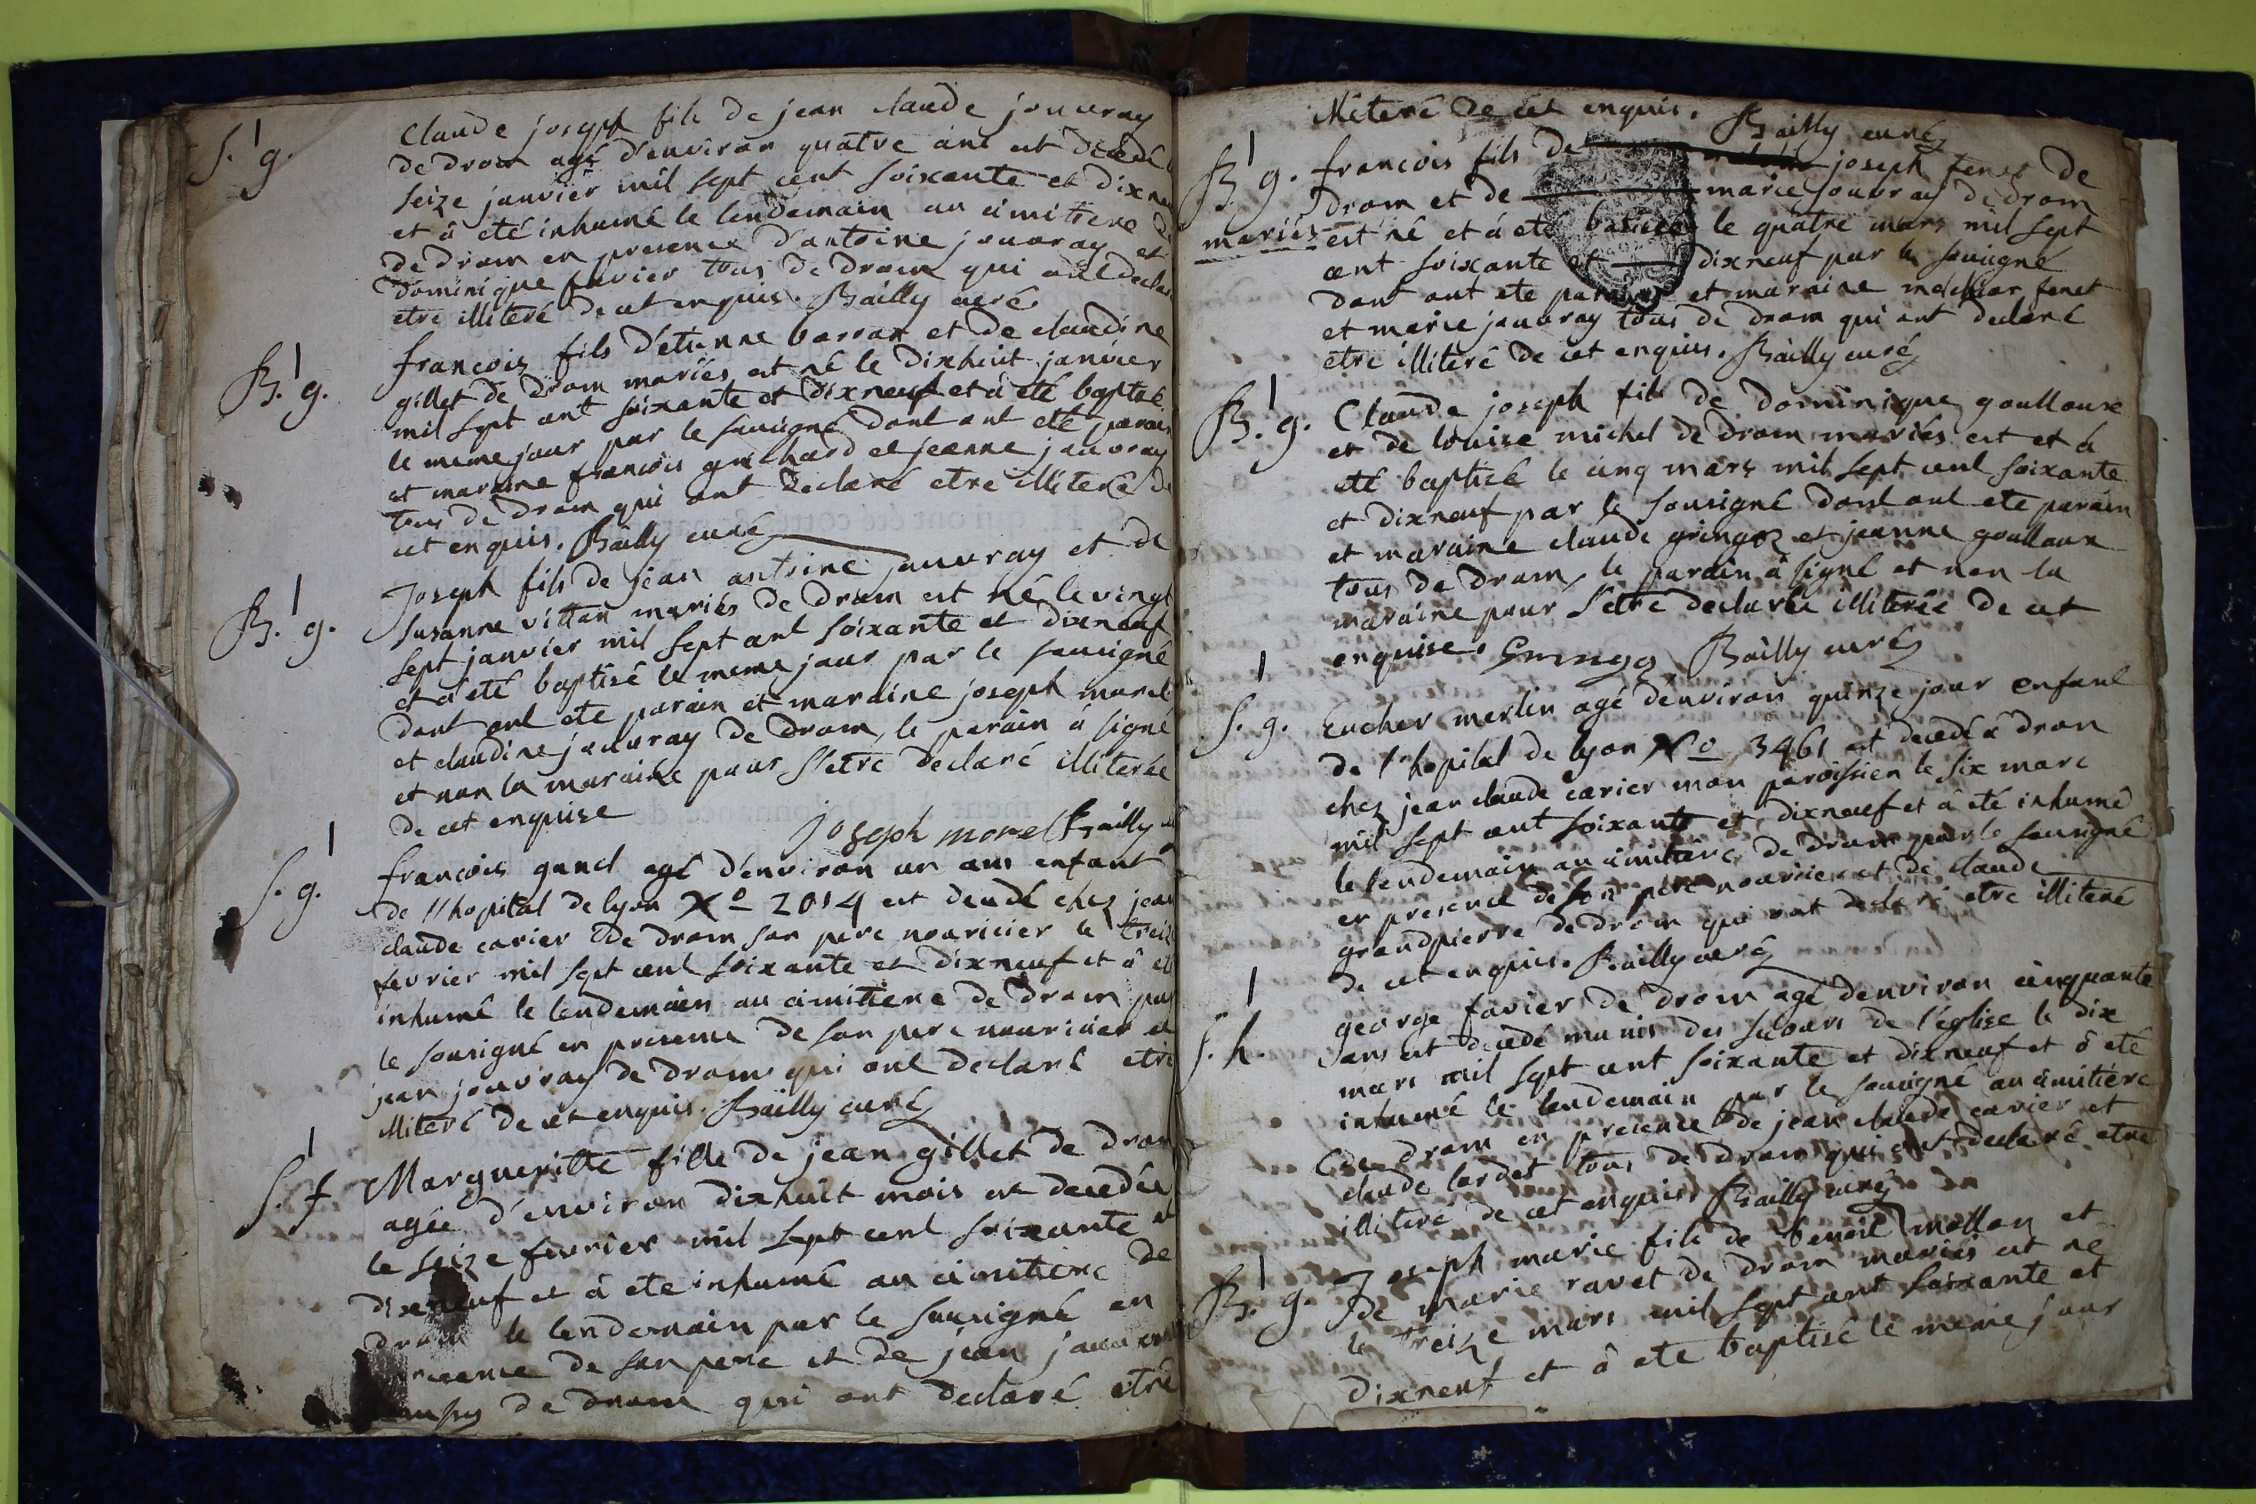 S. 1 g.
Claude joseph fils de jean claude jouvray
de drom agé d'environ quatre ans est decedé le
seize janvier mil sept cent soixante et dixneuf
et â été inhumé le lendemain au cimitiere de
de drom en presence d'antoine jouvray et
dominique favier tous de drom qui ont declaré
etre illiteré de cet enquis. Bailly curé
B. 1 g.
francois fils d'etienne barran et de claudine
gillet de drom mariés est né le dixhuit janvier
mil sept cent soixante et dixneuf et â été baptisé
le meme jour par le sousigné dont ont eté parain
et maraine francois guichard et jeanne jouvray
tous de drom qui ont declaré etre illiteré de
cet enquis. Bailly curé
B. 1 g.
Joseph fils de jean antoine jouvray et de
susanne vittan mariés de drom est né le vingt
sept janvier mil sept cent soixante et dixneuf
et â eté baptisé le meme jour par le sousigné
dont ont ete parain et maraine joseph morel
et claudine jouvray de drom, le parain â signé
et non la maraine pour s'etre declaré illiterée
de cet enquise
joseph morel Bailly
S. 1 g.
francois gunel agé d'environ un ans enfant
de l'hopital de lyon No 2014 est decedé chez jean
claude carier de drom son pere nouricier le treize
fevrier mil sept cent soixante et dixneuf et â eté
inhumé le lendemain au cimitiere de drom par
le sousigné en presence de son pere nouricier et
jean jouvray de drom qui ont declaré etre
illiteré de cet enquis. Bailly curé
S. 1 f
Margueritte fille de jean gillet de drom
agée d'environ dixhuit mois est decedée
le seize fevrier mil sept cent soixante et
dixneuf et â ete inhumé au cimitiere de
drom le lendemain par le sousigné en
presence de son pere et de jean jouvray
de drom qui ont declaré etre
illiteré de cet enquis. Bailly curé
B. 1 g.
mariés
francois fils de joseph fenet de
drom et de marie jouvray de drom
est né et â eté batisé le quatre mars mil sept
cent soixante et dixneuf par le sousigné
dont ont ete parain et maraine melchior fenet
et marie jouvray tous de drom qui ont declaré
etre illiteré de cet enquis. Bailly curé
B. 1 g.
Claude joseph fils de dominique goulloux
et de louise michel de drom mariés est et â
eté baptisé le cinq mars mil sept cent soixante
et dixneuf par le sousigné dont ont ete parain
et maraine claude gringoz et jeanne goulloux
tous de drom, le parain â signé et non la
maraine pour s'etre declarée illiterée de cet
enquise. Bailly curé
S. 1 g.
Eucher merlin agé d'environ quinze jour enfant
de l'hopital de lyon No 3461 est decedé â drom
chez jean claude carier mon paroissien le six mars
mil sept cent soixante et dixneuf et â été inhumé
le lendemain au cimitiere de drom par le sousigné
en presence de son pere nouricier et de claude
grandpierre de drom qui ont declaré etre illiteré
de cet enquis. Bailly curé
S. 1 h.
george favier de drom agé d'environ cinquante
ans est decedé munis des secours de l'église le dix
mars mil sept cent soixante et dixneuf et ô eté
inhumé le lendemain par le sousigné au cimitiere
de drom en presence de jean claude carier et
claude lardet tous de drom qui ont declaré etre
illiteré de cet enquis. Bailly curé
B. 1 g.
Joseph marie fils de benoit mollon et
de marie ravet de drom mariés est né
le treize mars mil sept cent soixante et
dixneuf et â ete baptisé le meme jour